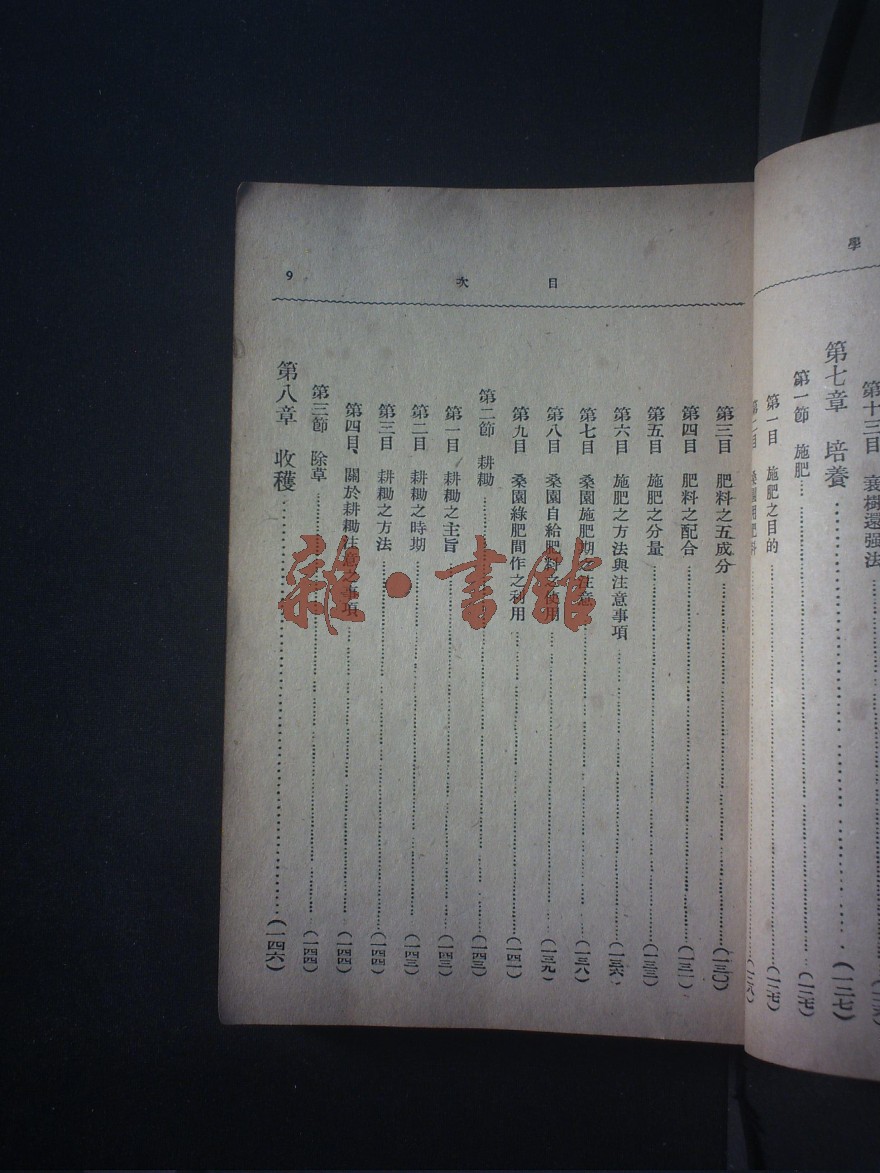 學
第十三目 衰樹還强法
第七章 培養(一二七)
第一節 施肥(一二七)
第一目 施肥之目的(一二七)
第二目 桑園用肥料(一二八)
目次 9
第三目 肥料之五成分(一三〇)
第四目 肥料之配合(一三一)
第五目 施肥之分量(一三三)
第六目 施肥之方法與注意事項(一三六)
第七目 桑園施肥期之注意(一三八)
第八目 桑園自給肥料之使用(一三九)
第九目 桑園綠肥間作之利用(一四一)
第二節 耕耡(一四三)
第一目 耕耡之主旨(一四三)
第二目 耕耡之時期(一四三)
第三目 耕耡之方法(一四四)
第四目、關於耕耡注意之事項(一四四)
第三節 除草(一四四)
第八章 收穫(一四六)
雜·書館